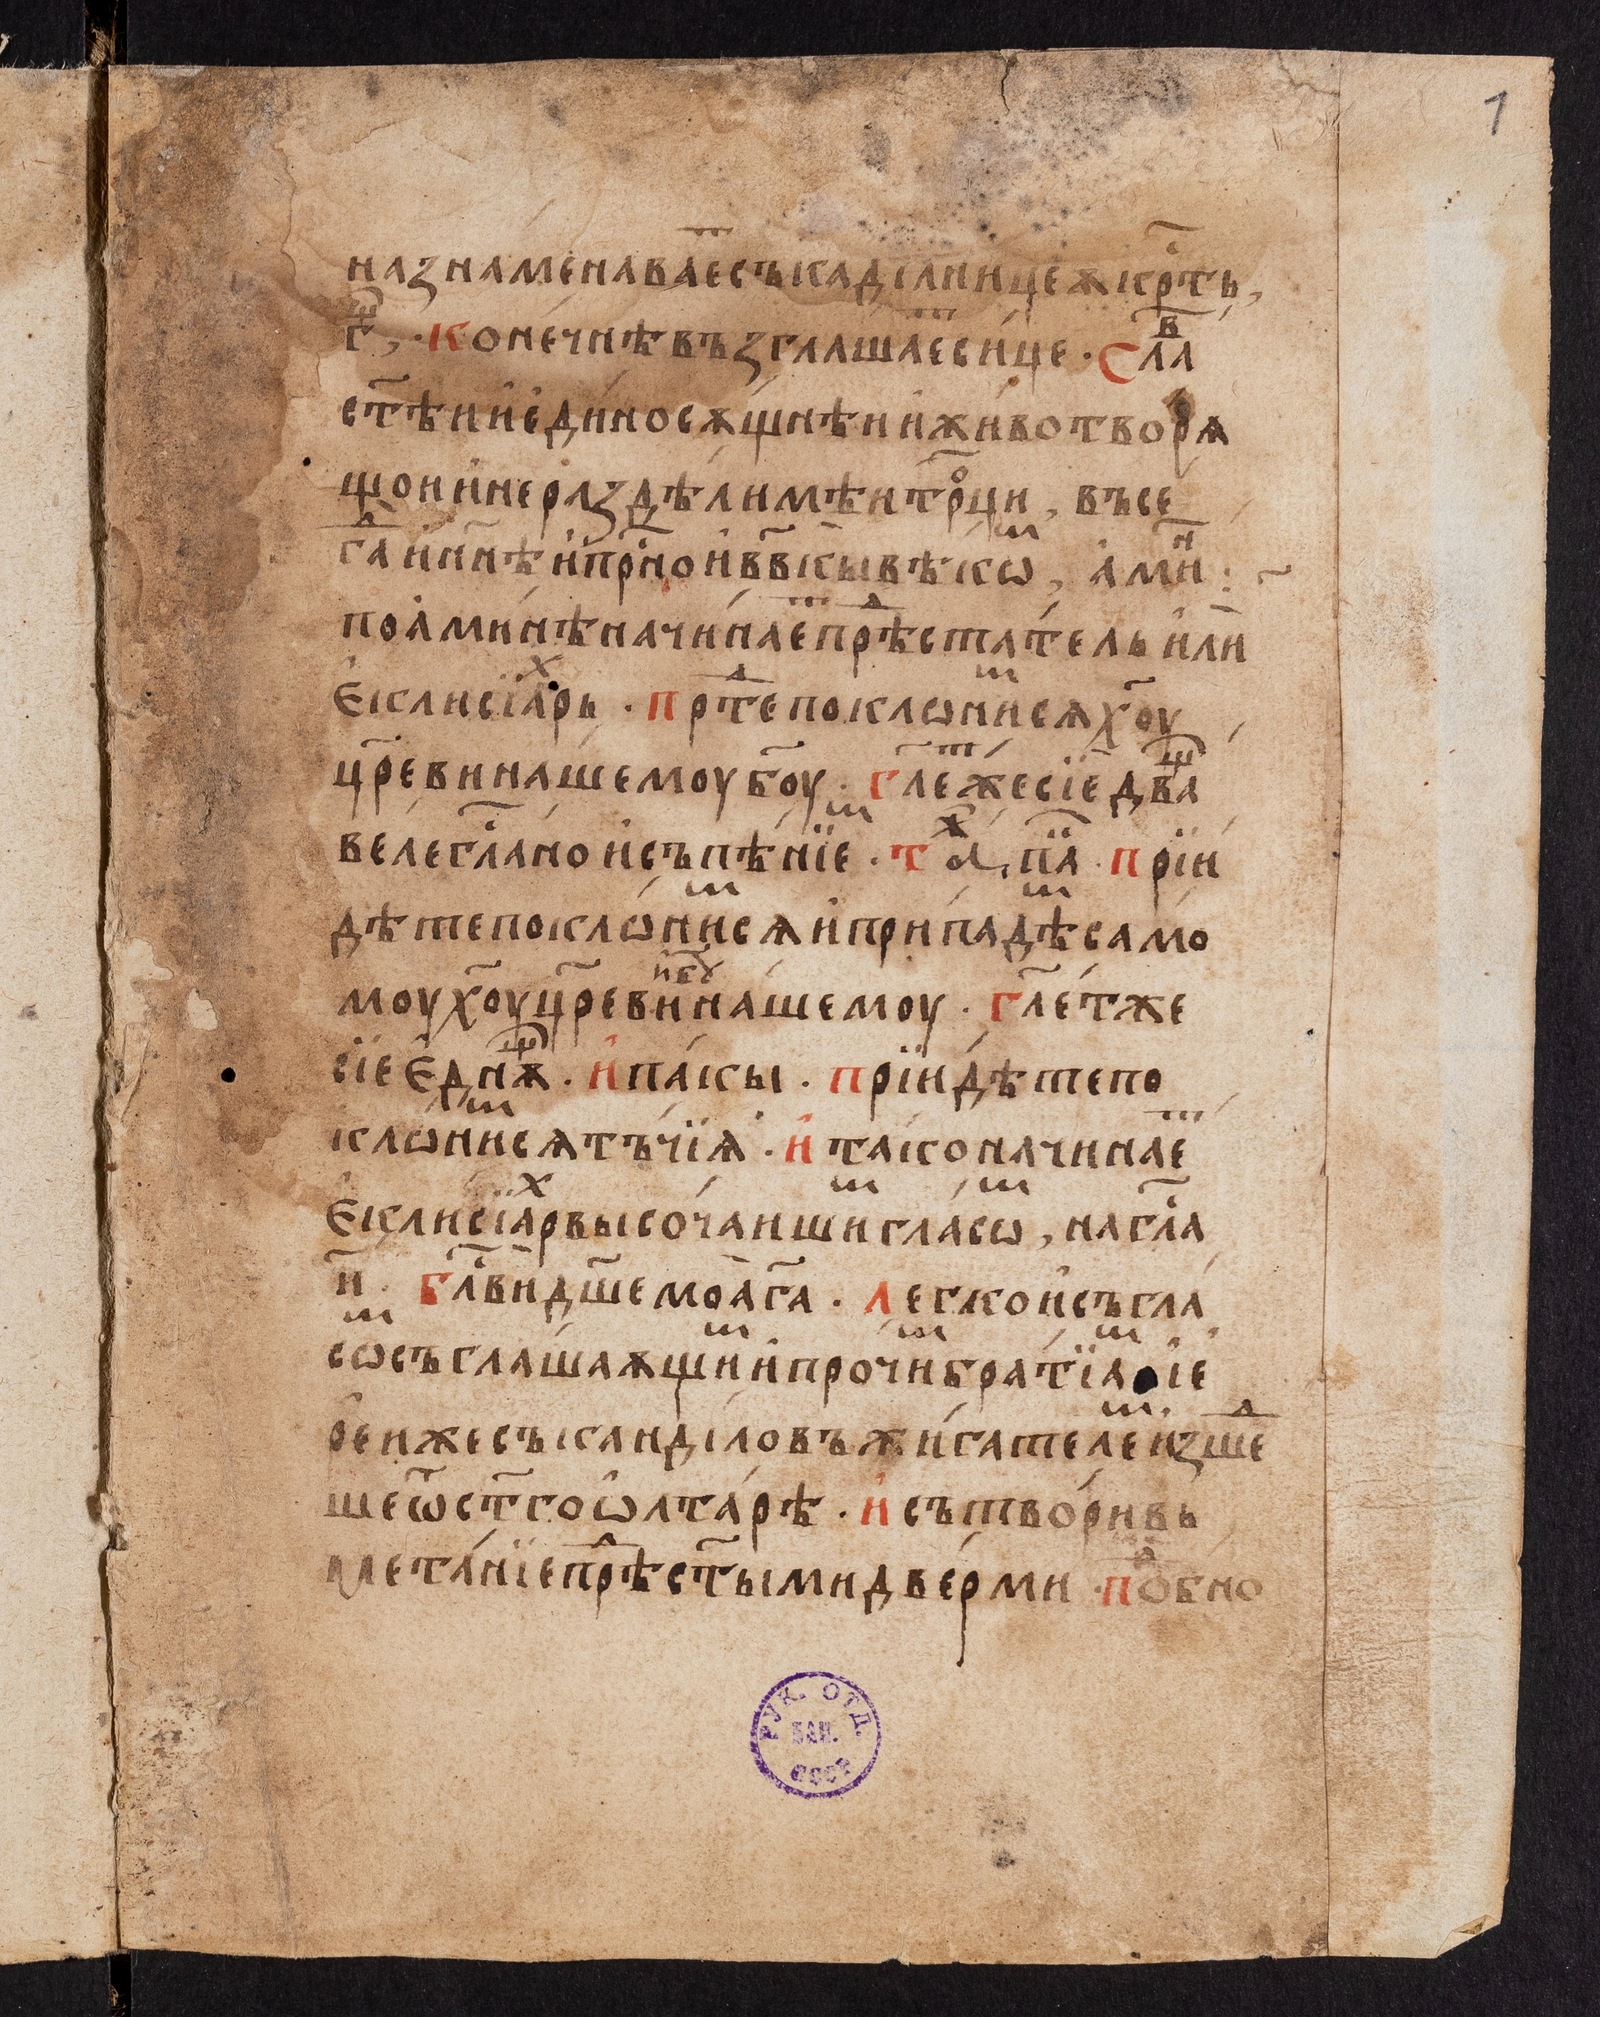 1
назнаменаваеⷮсъкадилницеѫкрⷭ҇ть,
гⷳ҇, · конечнѣвъзглашаеⷮсице · слаⷡ҇а
ст҃ѣиіединосѫщнѣиіживотворѧ
щоиінераздѣлимѣитрⷪ҇ци, въсе
гдⷶ҇аинн҃ѣипрⷭ҇ноивв҃кывѣкѡⷨ, амиⷩ҇ :~
поаминѣначинаеⷮпрѣⷣстатель или
еклисїаⷯрь · прⷣ҇теполкѡнⷨисѧхо҃у
цр҃евинашемоубо҃у · гл҃еⷮжесїедваⷳ҇
велеглⷭ҇аноисъпѣнїеⷨ · таⷤ, пⷶ҇а · прїи
дѣтепоклѡниⷨсѧиприпадѣⷨсамо
моухо҃уцр҃евинашемоу · гл҃етже
сїеединѫⷳ҇ · ипакы · прїидѣтепо
клѡниⷨсѧтъчїѫ · итаконачинаеⷮ
еклисїаⷯрвысочаишиⷨгласѡⷨ, наглⷭ҇а
и҃ · блⷭ҇види҃шемоага҃ · легкоисъгла
сѡⷨсъглашаѫщиⷨипрочиⷨбратїаⷨ іе
реижесъкандиловъжигателеⷨизшеⷣ
шеѿст҃гоѡлтарѣ · исътворивь
метанїепрѣⷣст҃ымидверми · поⷣбно
РУК. ОТД.
БАН.
СССР